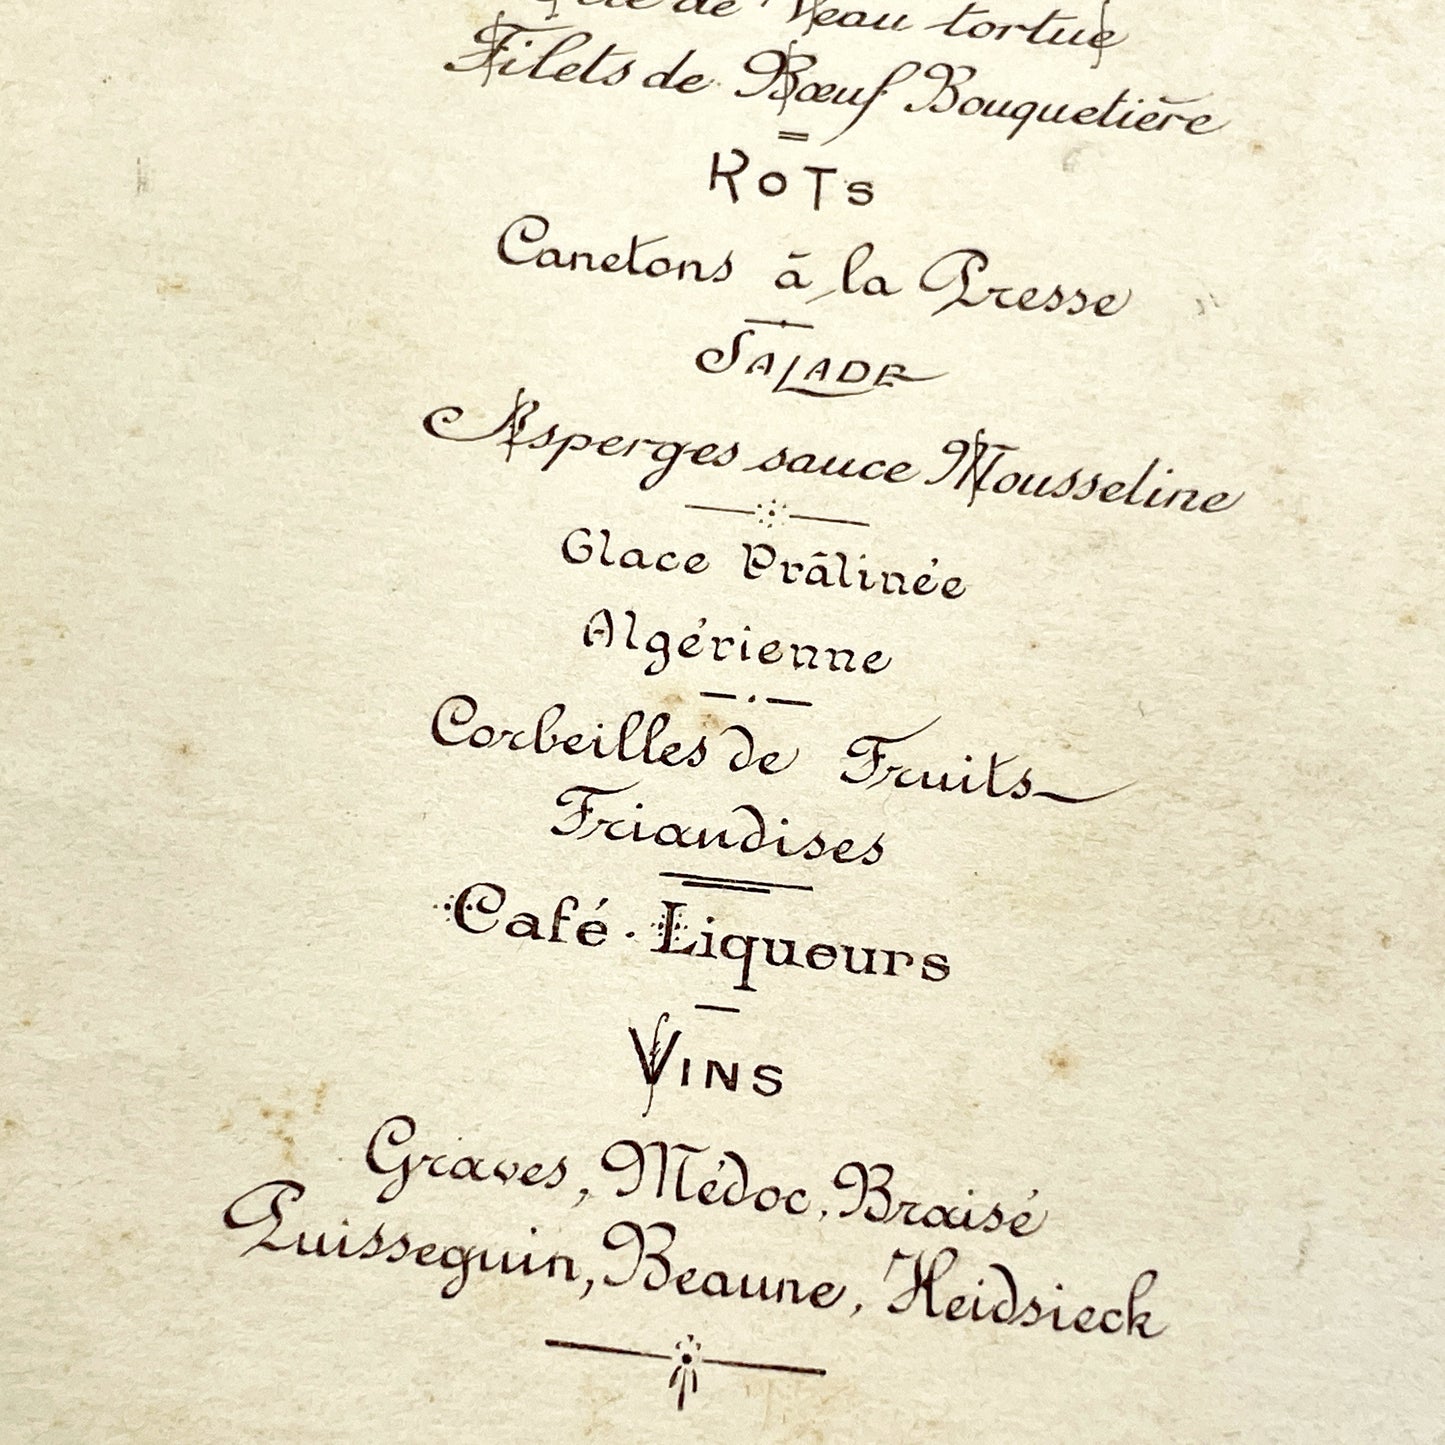 de Veau tortue
Filets de Bœuf Bouquetière
ROTS
Canetons à la Presse
SALADE
Asperges sauce Mousseline
Glace Prâlinée
Algérienne
Corbeilles de Fruits
Friandises
Café · Liqueurs
VINS
Graves, Médoc, Braisé
Puisseguin, Beaune, Heidsieck